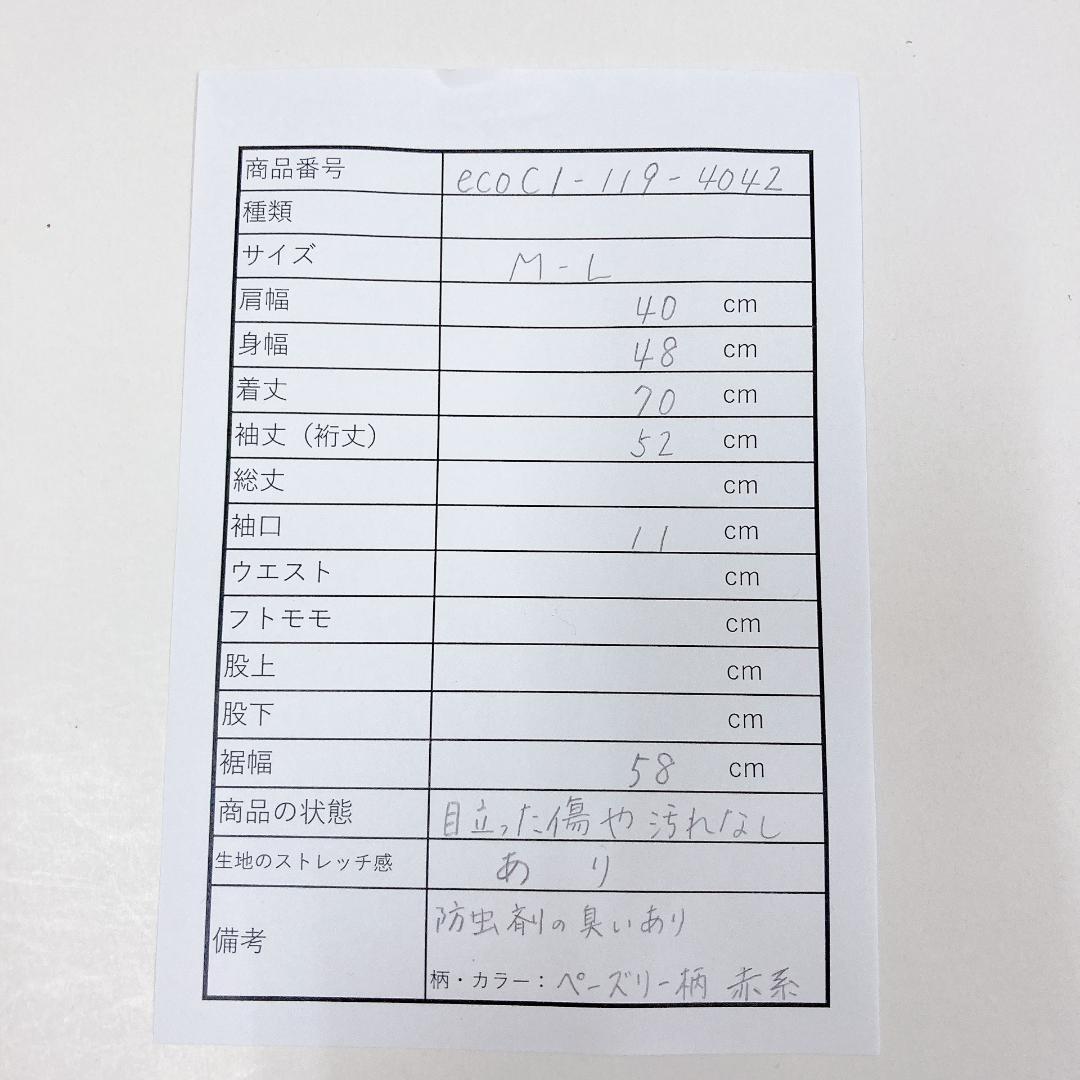 商品番号 ecoC1-119-4042
種類
サイズ M-L
肩幅 40 cm
身幅 48 cm
着丈 70 cm
袖丈（裄丈） 52 cm
総丈 cm
袖口 11 cm
ウエスト cm
フトモモ cm
股上 cm
股下 cm
裾幅 58 cm
商品の状態 目立った傷や汚れなし
生地のストレッチ感 あり
備考 防虫剤の臭いあり
柄・カラー：ペーズリー柄 赤系